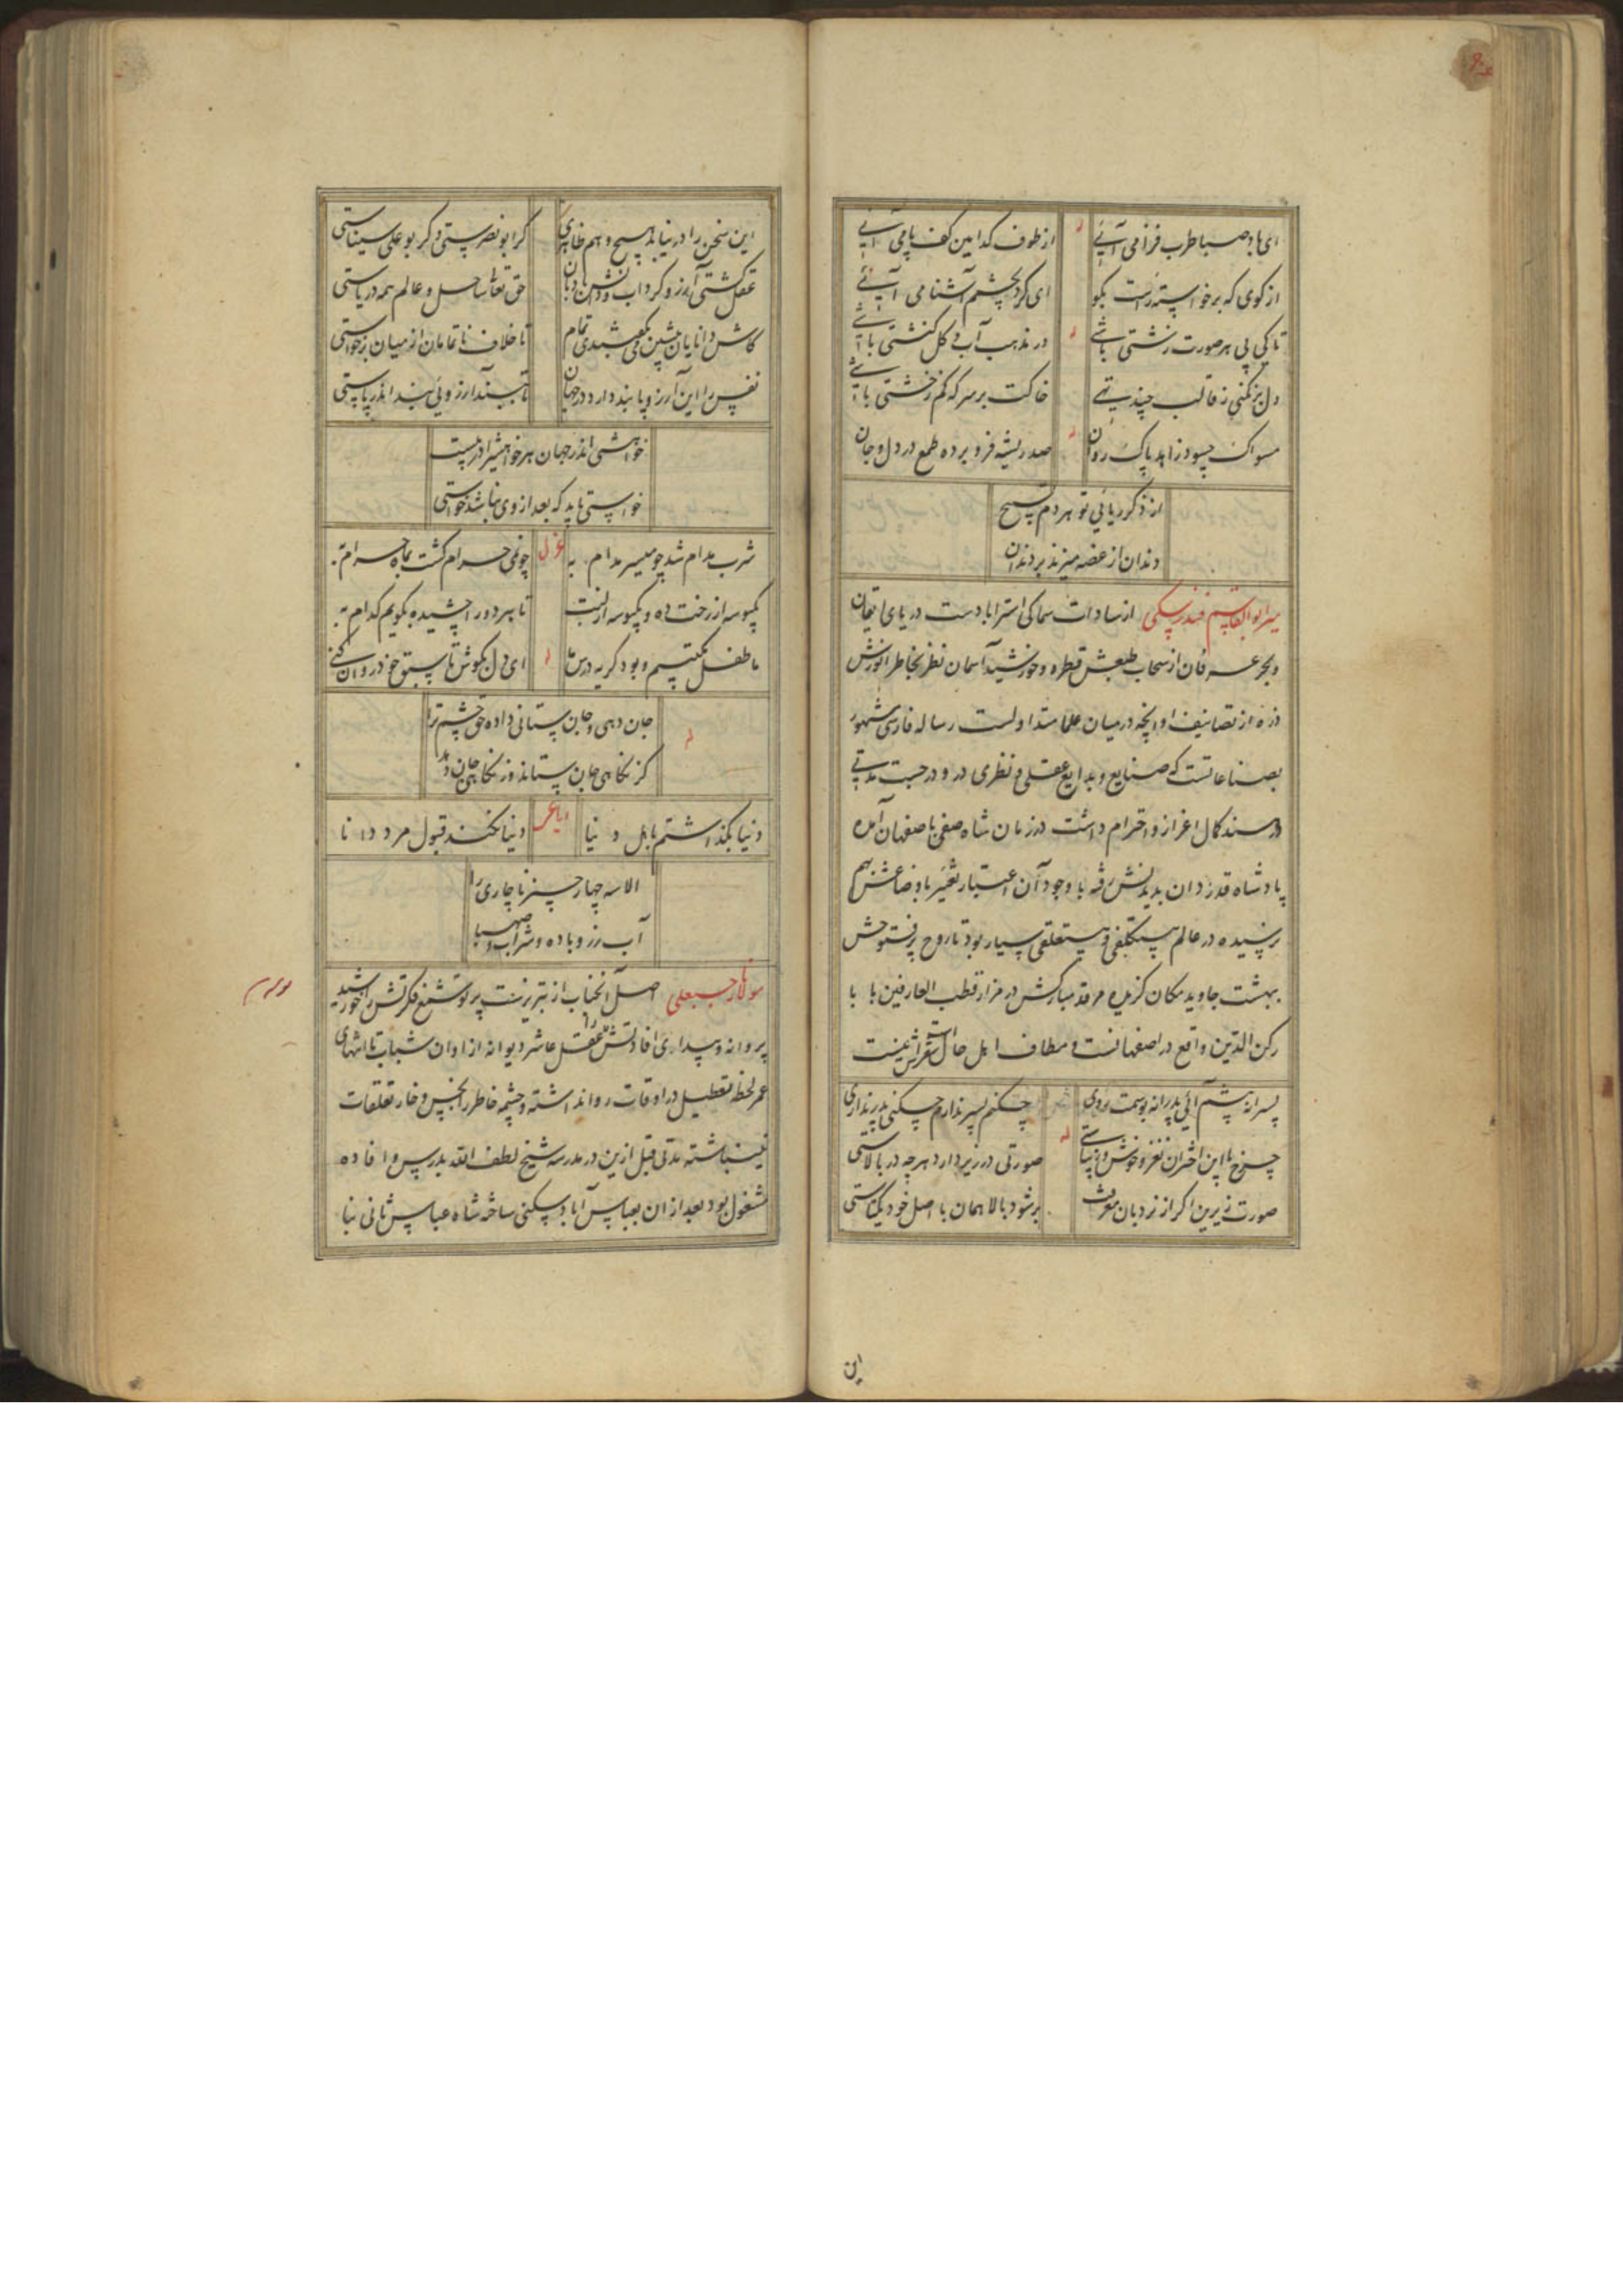 ای باد صبا طرب فزا می آیی از طوف کدامین کف پا می آیی
از کوی که برخواسته راست بکو ای کرد بچشم آشنا می آیی
تا کی پی هر صورت زشتی باشی در مذهب آب و کل کنشتی باشی
دل بر نکنی ز قالب خاکت بر سر که کم ز خشتی باشی
مسواک چسود زاهد پاک روان صد ریشه فرو برده طمع در دل و جان
از ذکر ریائی تو هر دم تسبیح
دندان از غصه میزند بر دندان
میر ابوالقاسم فندرسکی از سادات سماکی استراباد ست دریای ایقان
و بحر عرفان از سحاب طبعش قطره و خورشید آسمان نظر بخاطر انورش
ذره از تصانیف او آنچه در میان علما متداولست رساله فارسی مشهور
بصناعاتست که صنایع و بدایع عقلی و نظری در و درجست مدتی
در سند کمال اعزاز و احترام داشت در زمان شاه صفی باصفهان آمده
پادشاه قدردان بدیدنش رفته با وجود آن اعتبار تغیر باوضاعش هم
نرسیده در عالم بیتکلفی و بیتعلقی سیار بود تا روح پرفتوحش
بهشت جاوید مکان کزیده مرقد مبارکش در مزار قطب العارفین بابا
رکن الدین واقع در اصفهانست و مطاف اهل حال است شعرش اینست
پسرانه پیشم آئی پدرانه بوسمت روی چکنم پسر ندارم چکنی پدر نداری
چرخ با این اختران نغز و خوش و زیباستی صورتی در زیر دارد هر چه در بالاستی
صورت زیرین اکر از نردبان معرفت بر شود بالا همان با اصل خود یکتاستی
این
این سخن را در نیابد هیچ وهم ظاهری کر ابو نصرستی و کر بو علی سیناستی
عقل کشتی آرزو کرداب و دانش بادبان حق تعالی ساحل و عالم همه دریاستی
کاش دانایان پیشین می بکفتندی تمام تا خلاف ناتمامان از میان برخواستی
نفس را این آرزو پابند دارد در جهان تا ببند آرزوئی بند اندر پاستی
خواهشی اندر جهان هر خواهشی را در پیست
خواستی باید که بعد از وی نباشد خواستی
شرب مدام شد چو میسر مدام به غزل چون می حرام کشت بماه حرام به
یکبوسه از رخت ده و یکبوسه از لبت تا هر دو را چشیده بکویم کدام به
ما طفل مکتبیم و بود کریه درس ما له ای دل بکوش تا سبق خود روان کنی
جان دهی و جان ستانی داده حق چشم ترا له
کز نکاهی جان ستاند وز نکاهی جان دهد
دنیا بکذاشتم باهل دنیا رباعی دنیا نکند قبول مرد دانا
الا سه چهار چیز ناچاری را
آب رز و باده و شراب و صهبا
مولانا رجبعلی اصل آنجناب از تبریزست پرتو شمع فکرتش را خورشید
پروانه و بیداری افادتش را عقل عاشر دیوانه از اوان شباب تا انتهای
عمر لحظه تعطیل در اوقات روا نداشته و چشمه خاطر را بخس و خار تعلقات
نینباشته مدتی قبل ازین در مدرسه شیخ لطف الله بدرس و افاده
مشغول بود بعد از ان بعباس آباد و سکنی ساخته شاه عباس ثانی بنا